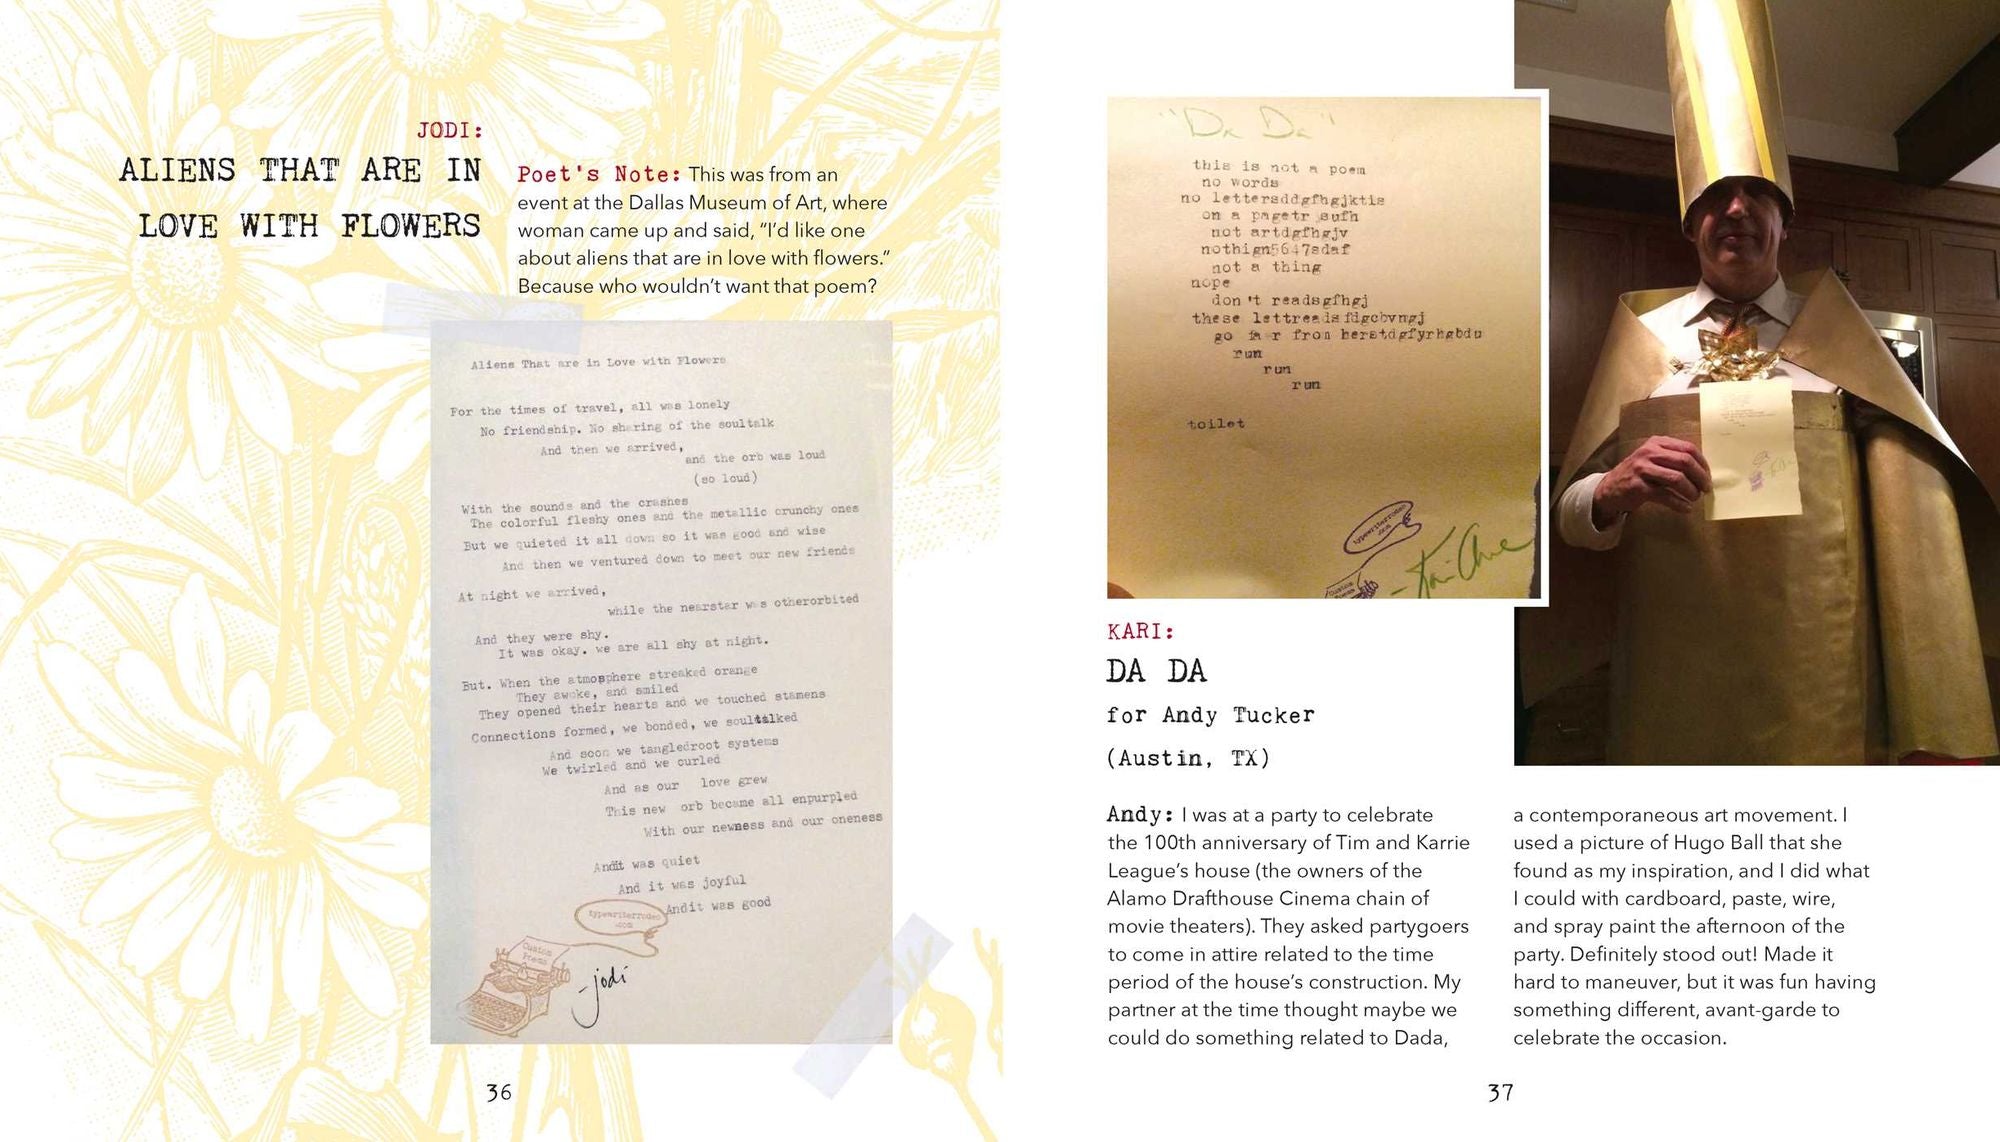 JODI:
ALIENS THAT ARE IN
LOVE WITH FLOWERS
Poet's Note: This was from an
event at the Dallas Museum of Art, where
woman came up and said, “I’d like one
about aliens that are in love with flowers.”
Because who wouldn’t want that poem?
Aliens That are in Love with Flowers
For the times of travel, all was lonely
No friendship. No sharing of the soultalk
And then we arrived,
and the orb was loud
(so loud)
With the sounds and the crashes
The colorful fleshy ones and the metallic crunchy ones
But we quieted it all down so it was good and wise
And then we ventured down to meet our new friends
At night we arrived,
while the nearstar was otherorbited
And they were shy.
It was okay. we are all shy at night.
But. When the atmosphere streaked orange
They awoke, and smiled
They opened their hearts and we touched stamens
Connections formed, we bonded, we soultalked
And soon we tangledroot systems
We twirled and we curled
And as our love grew
This new orb became all enpurpled
With our newness and our oneness
Andit was quiet
And it was joyful
Andit was good
typewriterrodeo
.com
Custom
Poems
-jodi
36
"Da Da"
this is not a poem
no words
no lettersddgfhgjktis
on a pagetr sufh
not artdgfhgjv
nothign5647sdaf
not a thing
nope
don't readsgfhgj
these lettreadsfdgcbvngj
go far from herstdgfyrhgbdu
run
run
run
toilet
typewriterrodeo
.com
Custom
Poems
KARI:
DA DA
for Andy Tucker
(Austin, TX)
Andy: I was at a party to celebrate
the 100th anniversary of Tim and Karrie
League’s house (the owners of the
Alamo Drafthouse Cinema chain of
movie theaters). They asked partygoers
to come in attire related to the time
period of the house’s construction. My
partner at the time thought maybe we
could do something related to Dada,
a contemporaneous art movement. I
used a picture of Hugo Ball that she
found as my inspiration, and I did what
I could with cardboard, paste, wire,
and spray paint the afternoon of the
party. Definitely stood out! Made it
hard to maneuver, but it was fun having
something different, avant-garde to
celebrate the occasion.
37